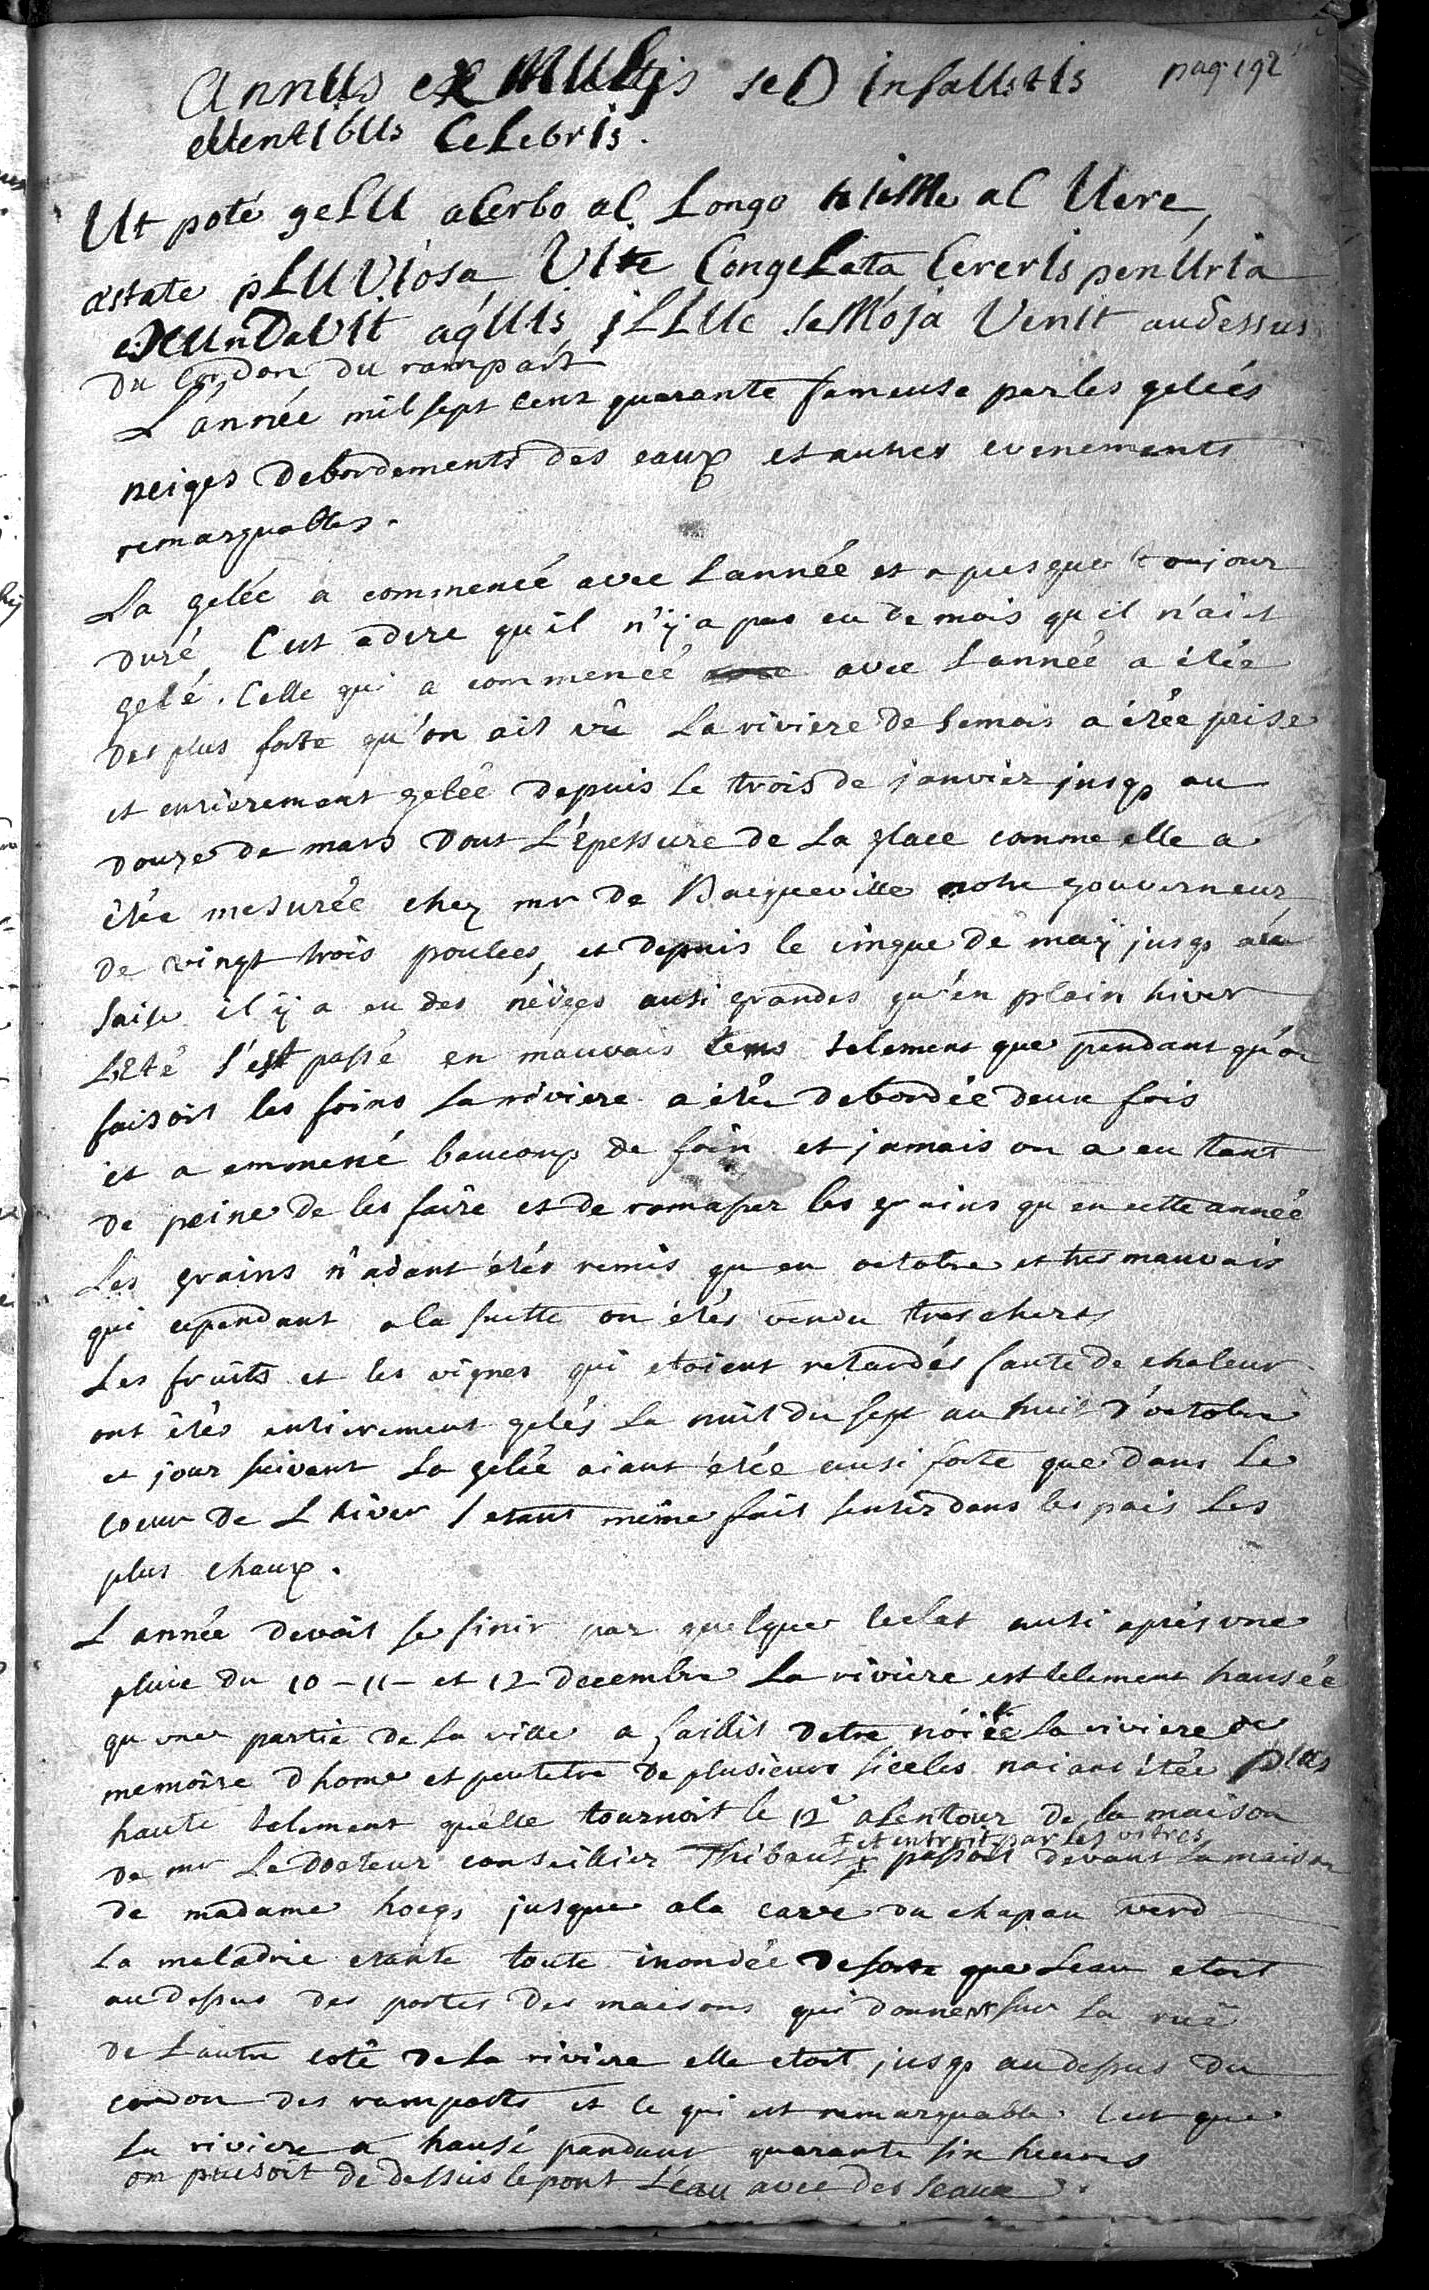 pag. 192
Annus ex Multis seD infaUstis
eUentibUs CeLebris.
Ut poté geLU aCerbo aC Longo hieMe aC Uere,
æstate pLUViosa, Vite CongeLata CererIs penUria
eXUnDaVit aqUis, iLLUc seMosa Venit audessus
du Cordon du rampart
L'année mil sept cent quarante fameuse par les geleés
neiges debordements des eaux et autres evenements
remarquables.
La geléé a commencé avec L'année et a presque toujour
duré, C'est adire qu'il n'ÿ a pas eu de mois qu'il n'ait
gelé. Celle qui a commencé avec L'année a étée
des plus forte qu'on ait vû La riviere de Semois a étée prise
et entierement gelée depuis le trois de janvier jusqs au
douze de mars dont L'épessure de La glace comme elle a
étée mesurée chez mr de Bacqueville notre gouverneur
de vingt trois poulces, et depuis le cinque de maÿ jusqs au
saise il ÿ a eu des néiges ausi grandes qu'en plain hiver
L'Eté s'est passé en mauvais tems telement que pendant qu'on
faisoit les foins La riviere a étée debordée deux fois
et a emmené baucoup de foin et jamais on a eu tant
de peine de les faire et de ramasser les grains qu'en cette année
Les grains n'aiant étés remis qu'en octobre et tres mauvais
qui cependant a la suitte on étés vendu tres chers
Les fruits et les vignes qui etoient retardés faute de chaleur
ont étés entierement gelés La nuit du sept au huit d'octobre
et jour suivant La gelée aiant étée ausi forte que dans Le
coeur de L'hiver s'etant méme fait sentir dans les païs Les
plus chaux.
L'année devoit se finir par quelque eclat ausi aprés une
pluie du 10 - 11 - et 12 decembre La riviere est telement hausée
qu'une partie de La ville a faillit detre nóiée La riviere de
memoire d'home et peutetre de plusieurs siecles naiant étée plus
haute telement quelle tournoit le 12e alentour de la maison
et entroit par les vitres
de mr Le docteur conseillier Thibaut passoit devant La maison
de madame hoegs jusque a la cave du chapau verd
La maladrie etante toute inondée desorte que Leau etoit
au dessus des portes des maisons qui donnent sur La ruë
de L'autre coté de La riviere elle etoit jusqs au dessus du
cordon des remparts et ce qui est remarquable c'est que
La riviere a hausé pendant quarante six heures
on puisoit de dessus le pont L'eau avec des seaux.